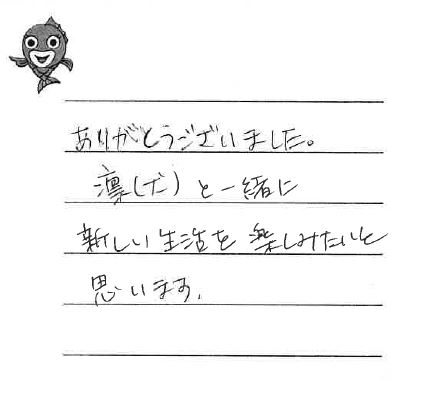 ありがとうございました。
凛(犬)と一緒に
新しい生活を楽しみたいと
思います.